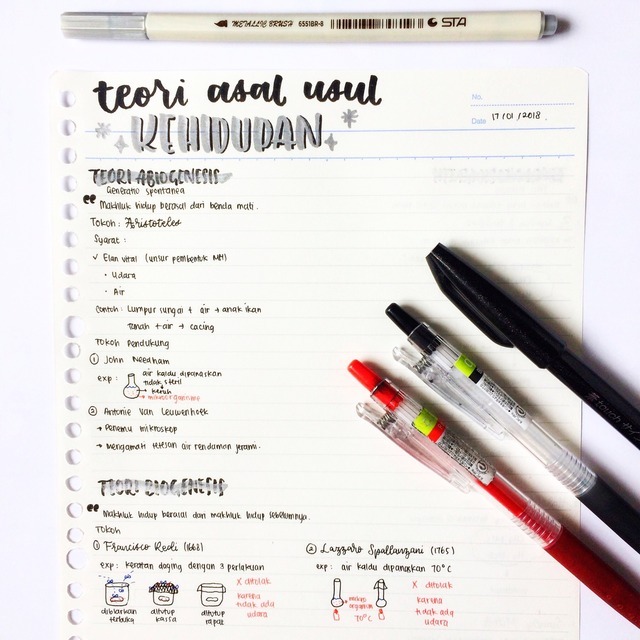 METALLIC BRUSH 6551BR-8 STA
teori asal usul
KEHIDUPAN
No.
Date 17/01/2018.
TEORI ABIOGENESIS
Generatio spontanea
" Makhluk hidup berasal dari benda mati.
Tokoh : Aristoteles
Syarat :
✓ Elan vital (unsur pembentuk MH)
• Udara
• Air
Contoh : Lumpur sungai + air → anak ikan
Tanah + air → cacing
Tokoh Pendukung
① John Needham
exp : air kaldu dipanaskan
tidak steril
→ keruh
→ mikroorganisme
② Antonie Van Leuwenhoek
→ Penemu mikroskop
→ Mengamati tetesan air rendaman jerami.
TEORI BIOGENESIS
" Makhluk hidup berasal dari makhluk hidup sebelumnya.
TOKOH
① Francisco Redi (1668)
exp : keratan daging dengan 3 perlakuan
dibiarkan terbuka
ditutup kassa
ditutup rapat
X ditolak
karena
tidak ada
udara
② Lazzaro Spallanzani (1765)
exp : air kaldu dipanaskan 70°C
mikro
organism
70°C
X ditolak
karena
tidak ada
udara
touch